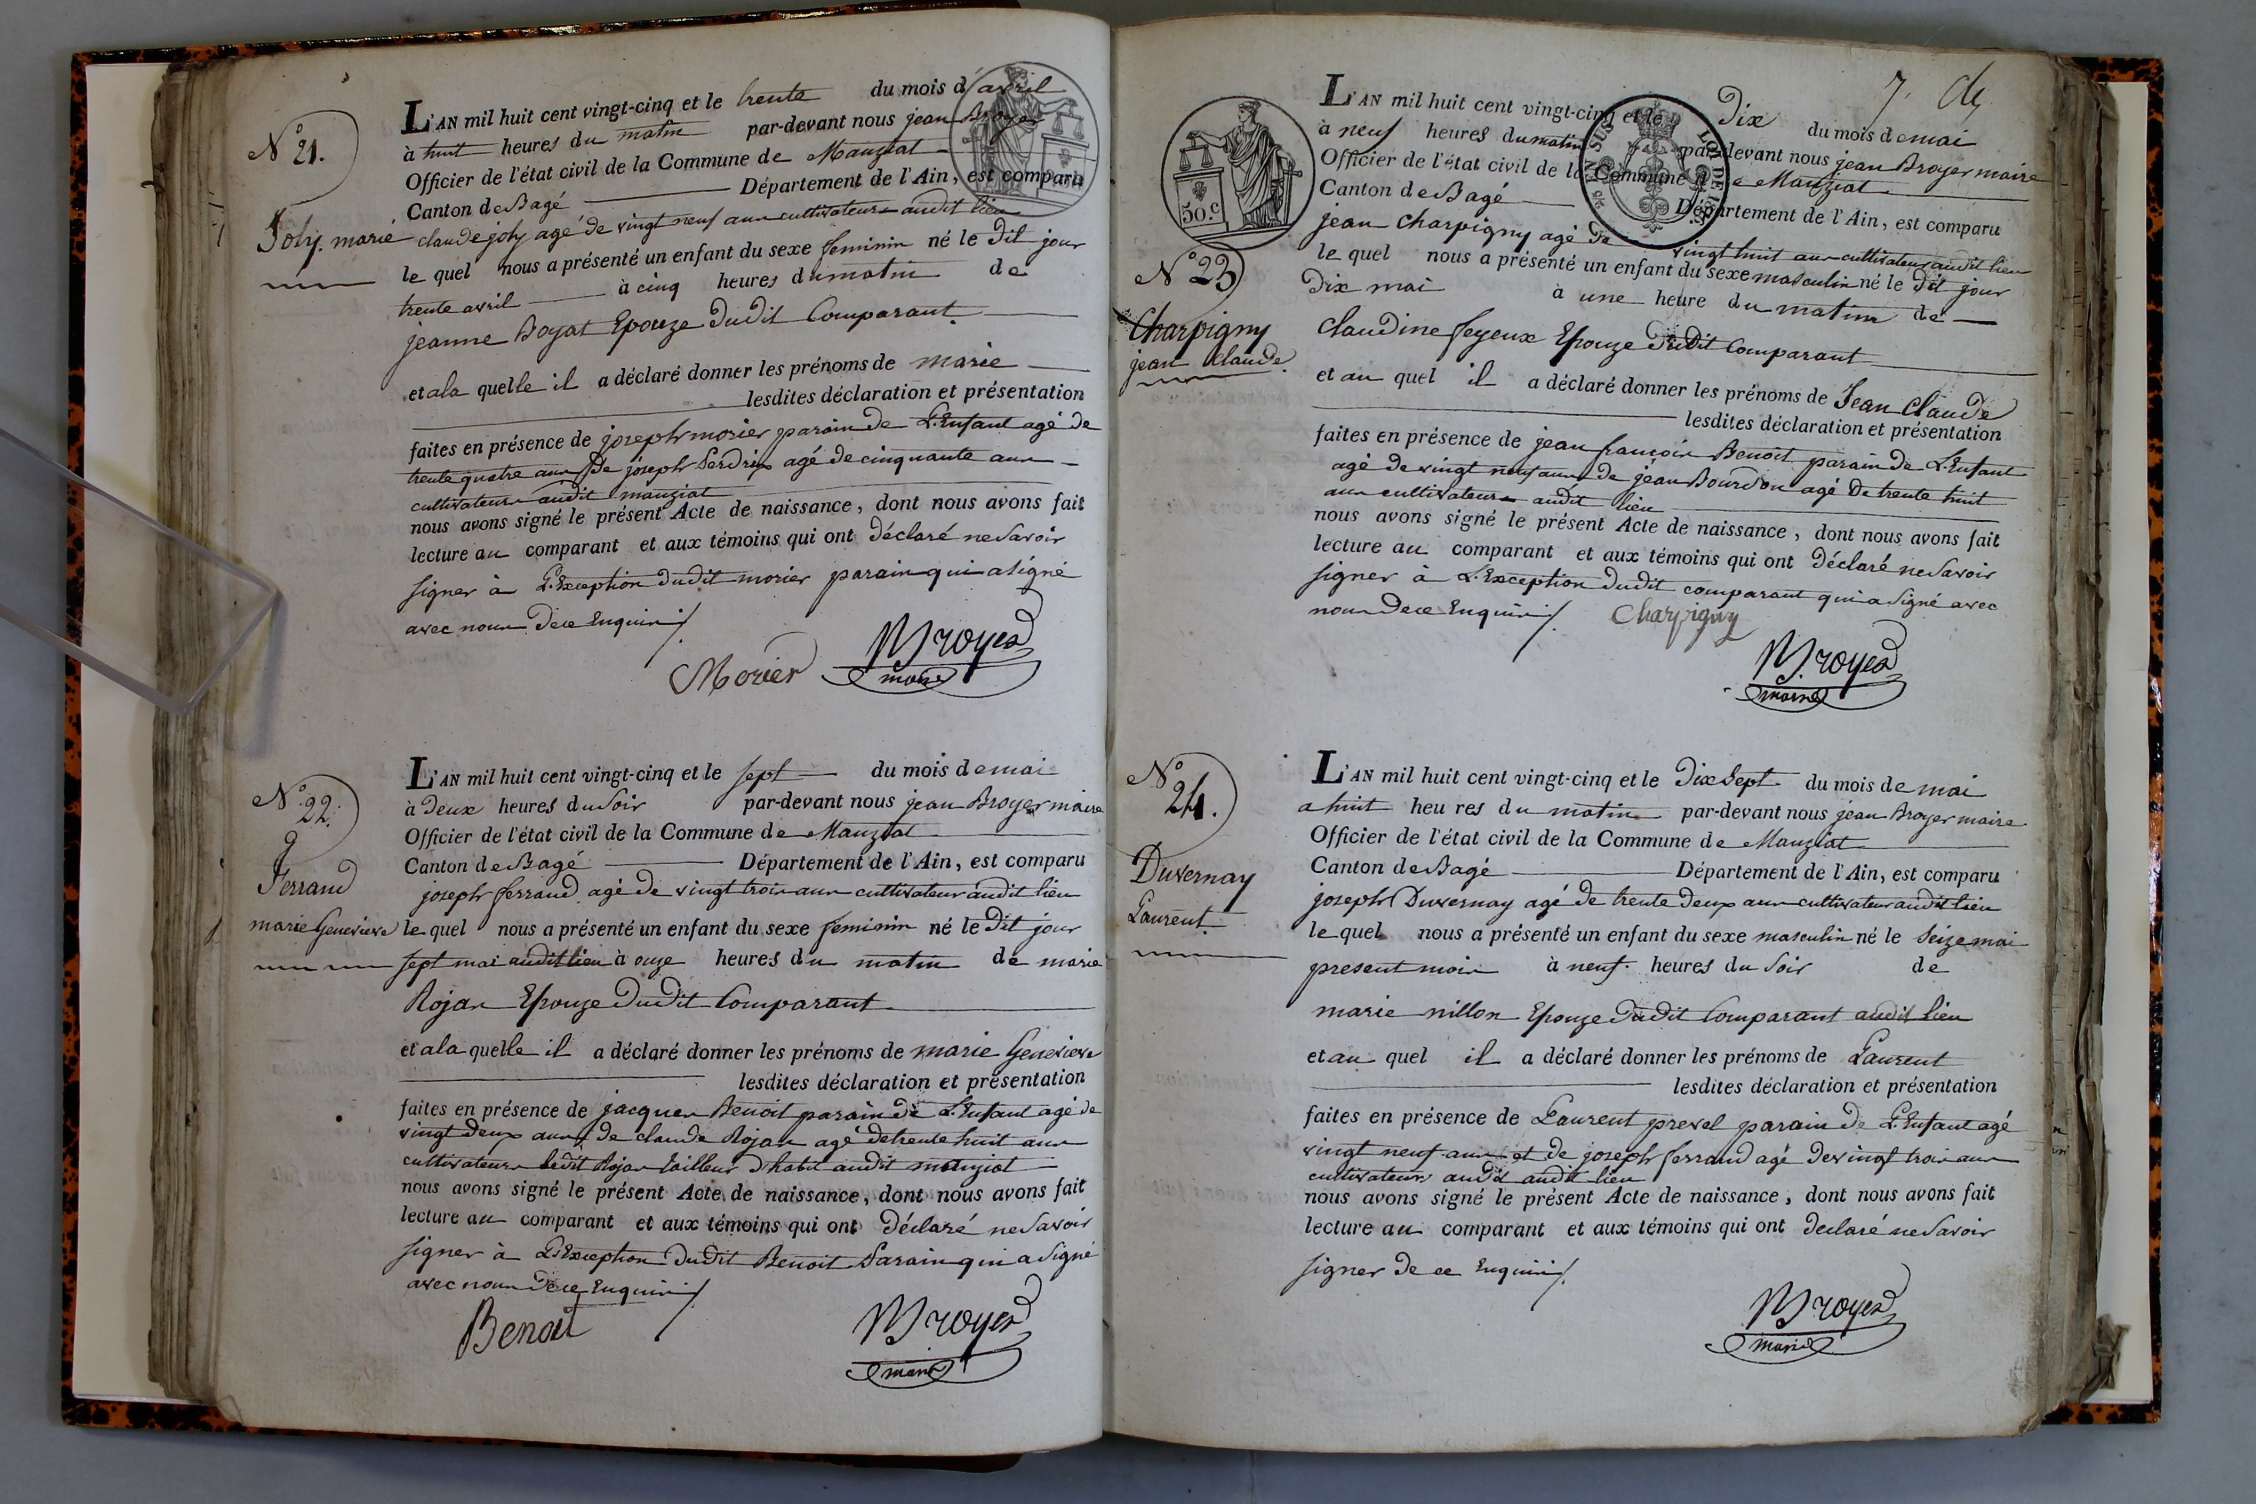 N° 21.
Joly marie
L'AN mil huit cent vingt-cinq et le trente du mois d'avril
à huit heures du matin par-devant nous jean Broyer
Officier de l'état civil de la Commune de Manziat
Canton de Bagé Département de l'Ain, est comparu
claude joly agé de vingt neuf ans cultivateur audit lieu
le quel nous a présenté un enfant du sexe feminin né le dit jour
trente avril à cinq heures du matin de
jeanne Boyat Epouze dudit Comparant
et a la quelle il a déclaré donner les prénoms de marie
lesdites déclaration et présentation
faites en présence de joseph morier parain de L'Enfant agé de
trente quatre ans & de joseph Perdrix agé de cinquante ans
cultivateurs audit manziat
nous avons signé le présent Acte de naissance, dont nous avons fait
lecture au comparant et aux témoins qui ont déclaré ne Savoir
signer à L'Exception dudit morier parain qui a signé
avec nous de ce Enquis ./.
Morier Broyer
maire
N° 22.
Ferrand
marie Genevieve
L'AN mil huit cent vingt-cinq et le sept du mois de mai
à deux heures du soir par-devant nous jean Broyer maire
Officier de l'état civil de la Commune de Manziat
Canton de Bagé Département de l'Ain, est comparu
joseph ferrand agé de vingt trois ans cultivateur audit lieu
le quel nous a présenté un enfant du sexe feminin né le dit jour
sept mai audit lieu à onze heures du matin de marie
Rojan Epouze dudit Comparant
et a la quelle il a déclaré donner les prénoms de marie Genevieve
lesdites déclaration et présentation
faites en présence de jacques Benoit parain de L'Enfant agé de
vingt deux ans & de claude Rojan agé de trente huit ans
cultivateurs ledit Rojan tailleur d'habit audit manziat
nous avons signé le présent Acte de naissance, dont nous avons fait
lecture au comparant et aux témoins qui ont déclaré ne Savoir
signer à L'Exception dudit Benoit Parain qui a signé
avec nous de ce Enquis ./.
Benoit Broyer
maire
7.
50.c
EN SUS
LOI DE
N° 23
Charpigny
jean claude.
L'AN mil huit cent vingt-cinq et le Dix du mois de mai
à neuf heures du matin par-devant nous jean Broyer maire
Officier de l'état civil de la Commune de Manziat
Canton de Bagé Département de l'Ain, est comparu
jean Charpigny agé de vingt huit ans cultivateur audit lieu
le quel nous a présenté un enfant du sexe masculin né le dit jour
Dix mai à une heure du matin de
Claudine feyeux Epouze dudit Comparant
et au quel il a déclaré donner les prénoms de Jean Claude
lesdites déclaration et présentation
faites en présence de jean francois Benoit parain de L'Enfant
agé de vingt neuf ans & de jean Bourdon agé de trente huit
ans cultivateurs audit lieu
nous avons signé le présent Acte de naissance, dont nous avons fait
lecture au comparant et aux témoins qui ont déclaré ne Savoir
signer à L'Exception dudit comparant qui a signé avec
nous de ce Enquis ./. Charpigny
Broyer
maire
N° 24.
Duvernay
Laurent.
L'AN mil huit cent vingt-cinq et le Dix Sept du mois de mai
a huit heures du matin par-devant nous jean Broyer maire
Officier de l'état civil de la Commune de Manziat
Canton de Bagé Département de l'Ain, est comparu
joseph Duvernay agé de trente deux ans cultivateur audit lieu
le quel nous a présenté un enfant du sexe masculin né le Seize mai
present mois à neuf heures du soir de
marie nillon Epouze dudit Comparant audit lieu
et au quel il a déclaré donner les prénoms de Laurent
lesdites déclaration et présentation
faites en présence de Laurent prevel parain de L'Enfant agé
vingt neuf ans et de joseph ferrand agé de vingt trois ans
cultivateurs audit lieu
nous avons signé le présent Acte de naissance, dont nous avons fait
lecture au comparant et aux témoins qui ont declaré ne Savoir
signer de ce Enquis ./.
Broyer
maire